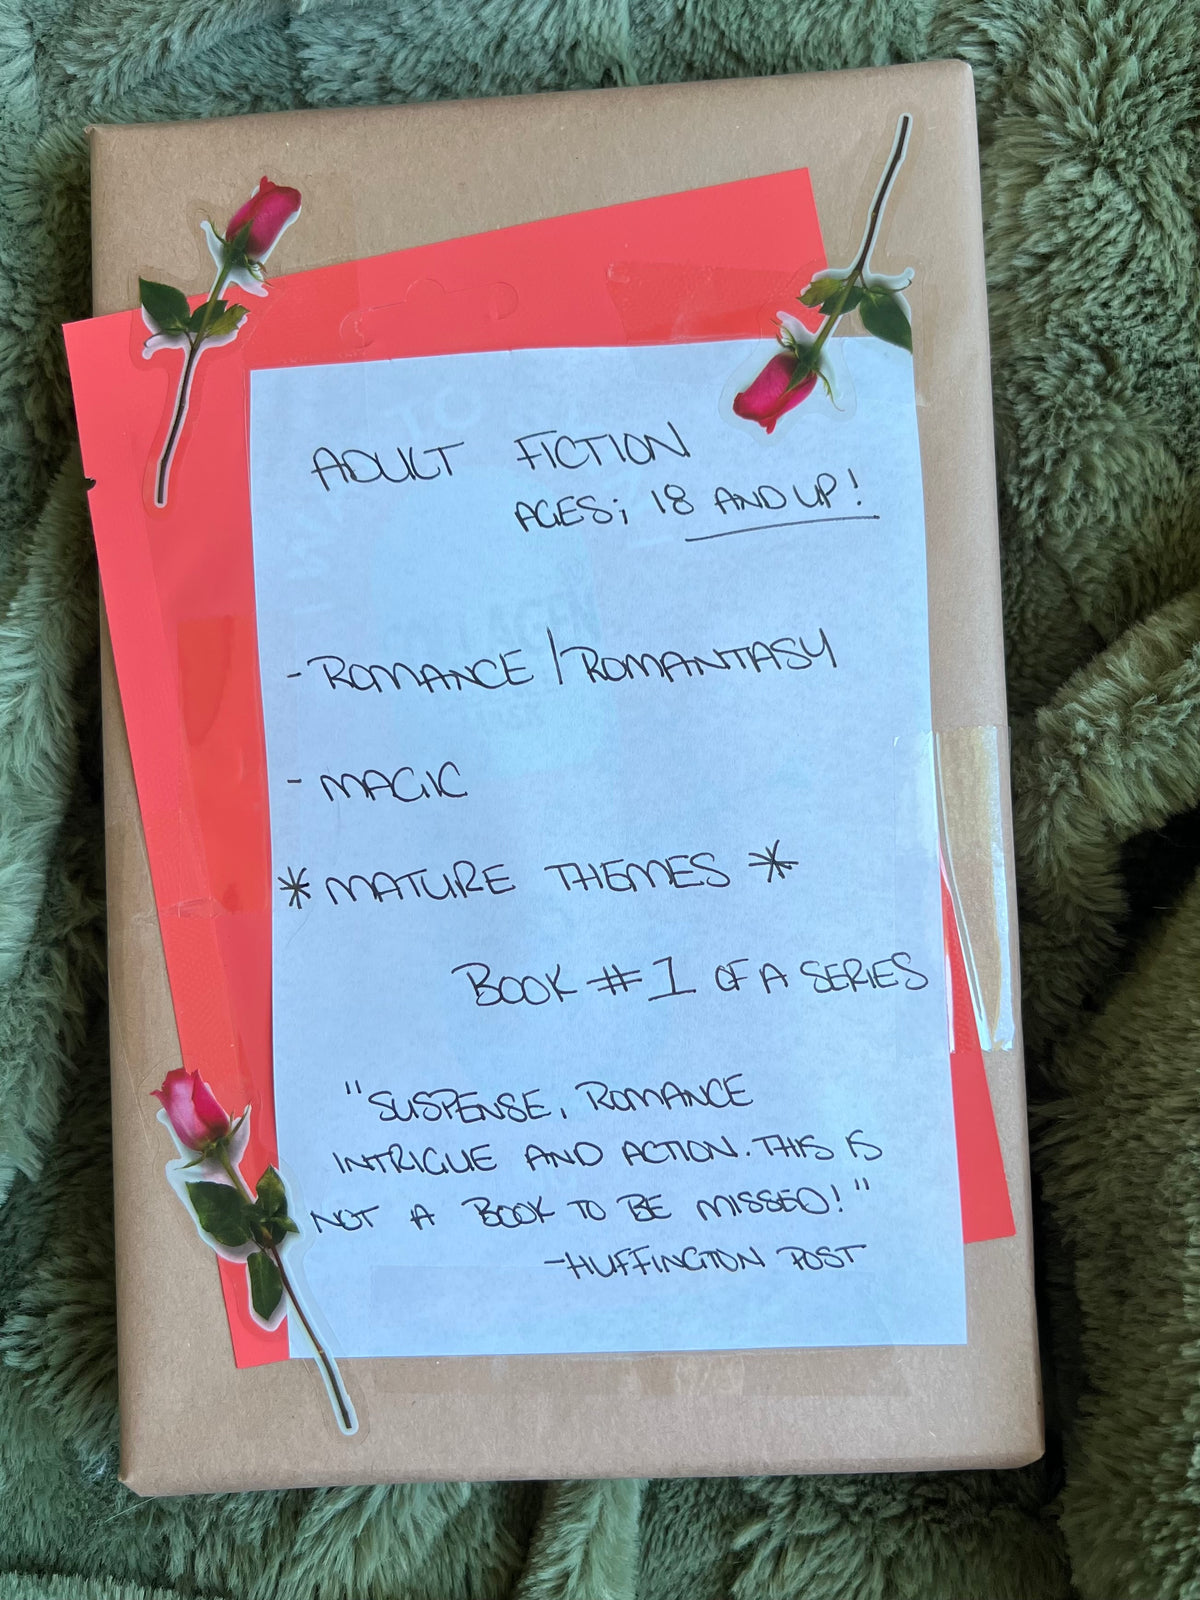 ADULT FICTION
AGES; 18 AND UP!
- ROMANCE / ROMANTASY
- MAGIC
* MATURE THEMES *
BOOK #1 OF A SERIES
"SUSPENSE, ROMANCE
INTRIGUE AND ACTION. THIS IS
NOT A BOOK TO BE MISSED!"
-HUFFINGTON POST